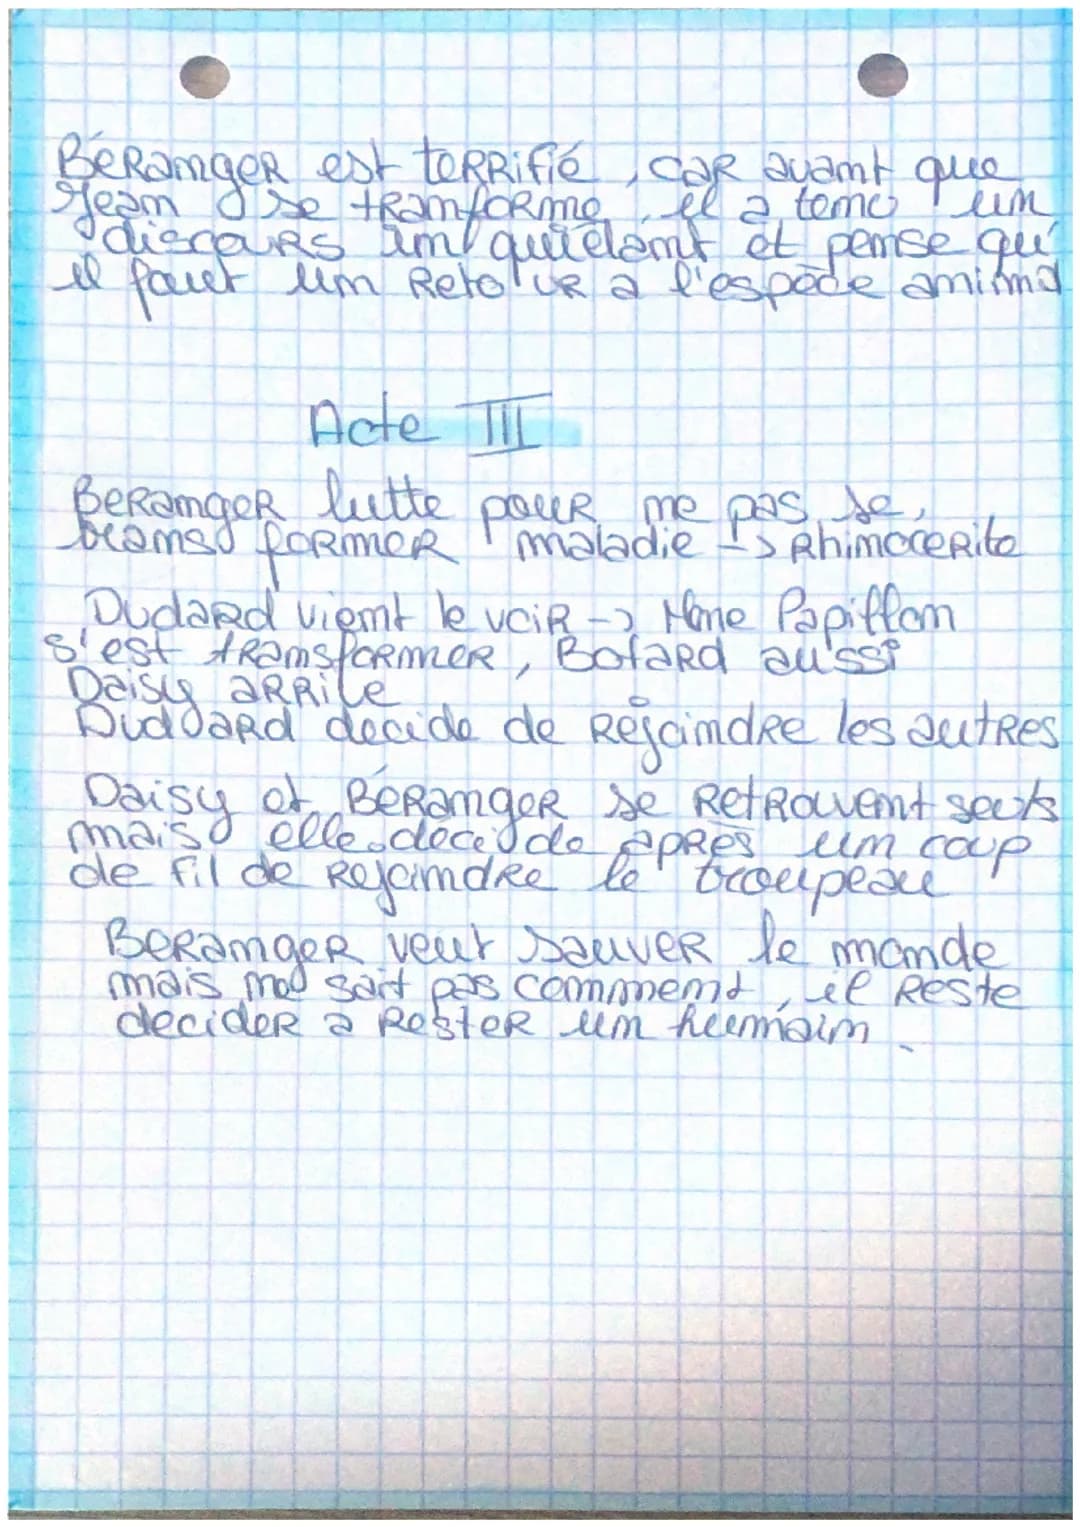 Béranger est terrifié, car avant que
Jean se tranforme, il a tenu un
discours inquiétant et pense qu'
il faut un retour a l'espèce animal
Acte III
Beranger lutte pour ne pas se
transformer maladie -> Rhinocérite
Dudard vient le voir -> Mme Papillon
s'est transformer, Botard aussi
Daisy arrive
Dudard decide de rejoindre les autres
Daisy et Béranger se retrouvent seuls
mais elle decide après un coup
de fil de rejoindre le troupeau
Beranger veut sauver le monde
mais ne sait pas comment, il reste
decider a rester un humain.